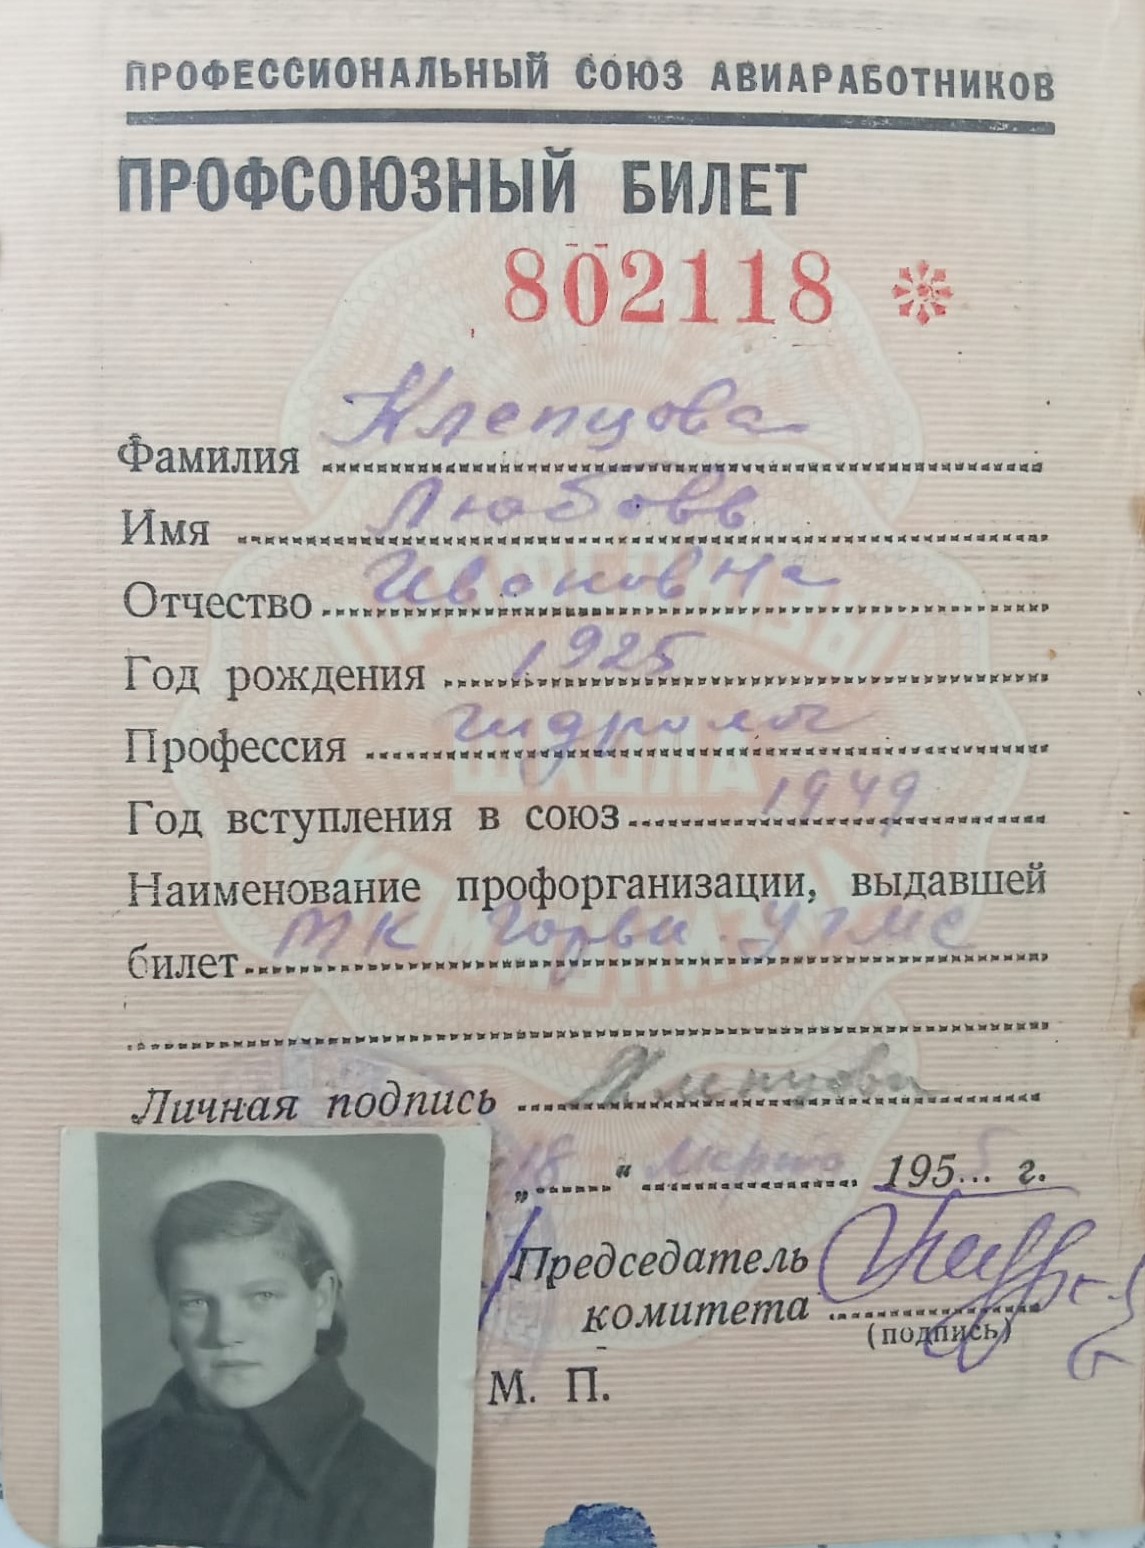 ПРОФЕССИОНАЛЬНЫЙ СОЮЗ АВИАРАБОТНИКОВ
ПРОФСОЮЗНЫЙ БИЛЕТ
802118
Фамилия Клепцова
Имя Любовь
Отчество Ивановна
Год рождения 1925
Профессия гидролог
Год вступления в союз 1949
Наименование профорганизации, выдавшей
билет МК УГМС
Личная подпись Клепцова
„18“ марта 1955 г.
Председатель
комитета
(подпись)
М. П.
ШКОЛА
КОММУНИЗМА